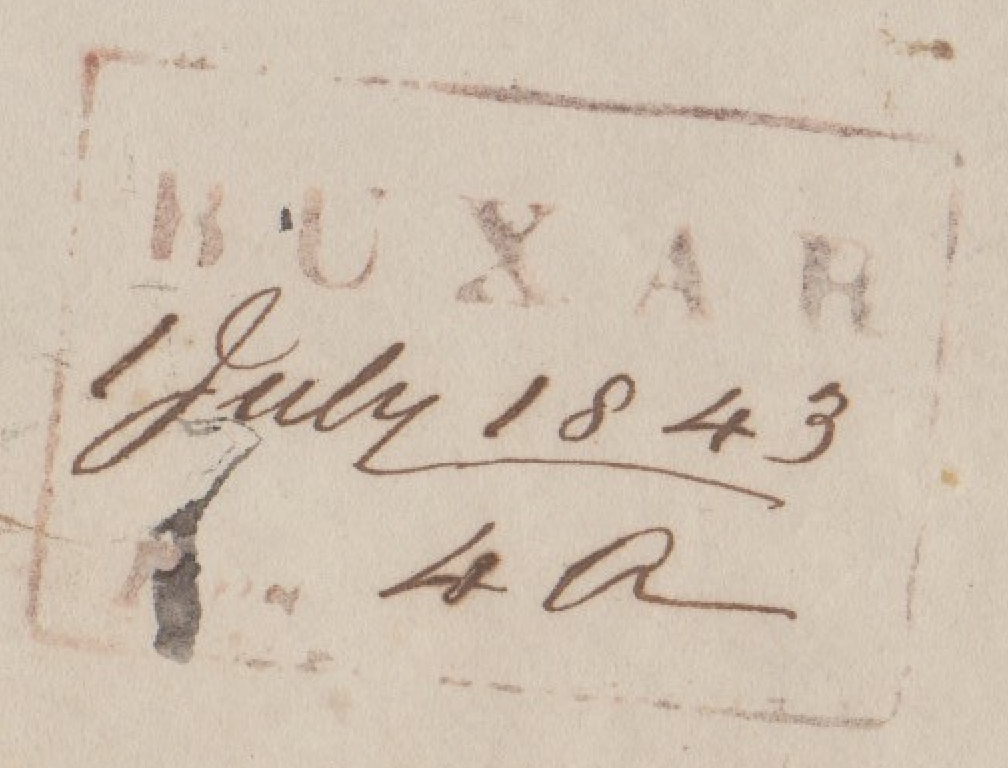 BUXAR
1 July 1843
4 A